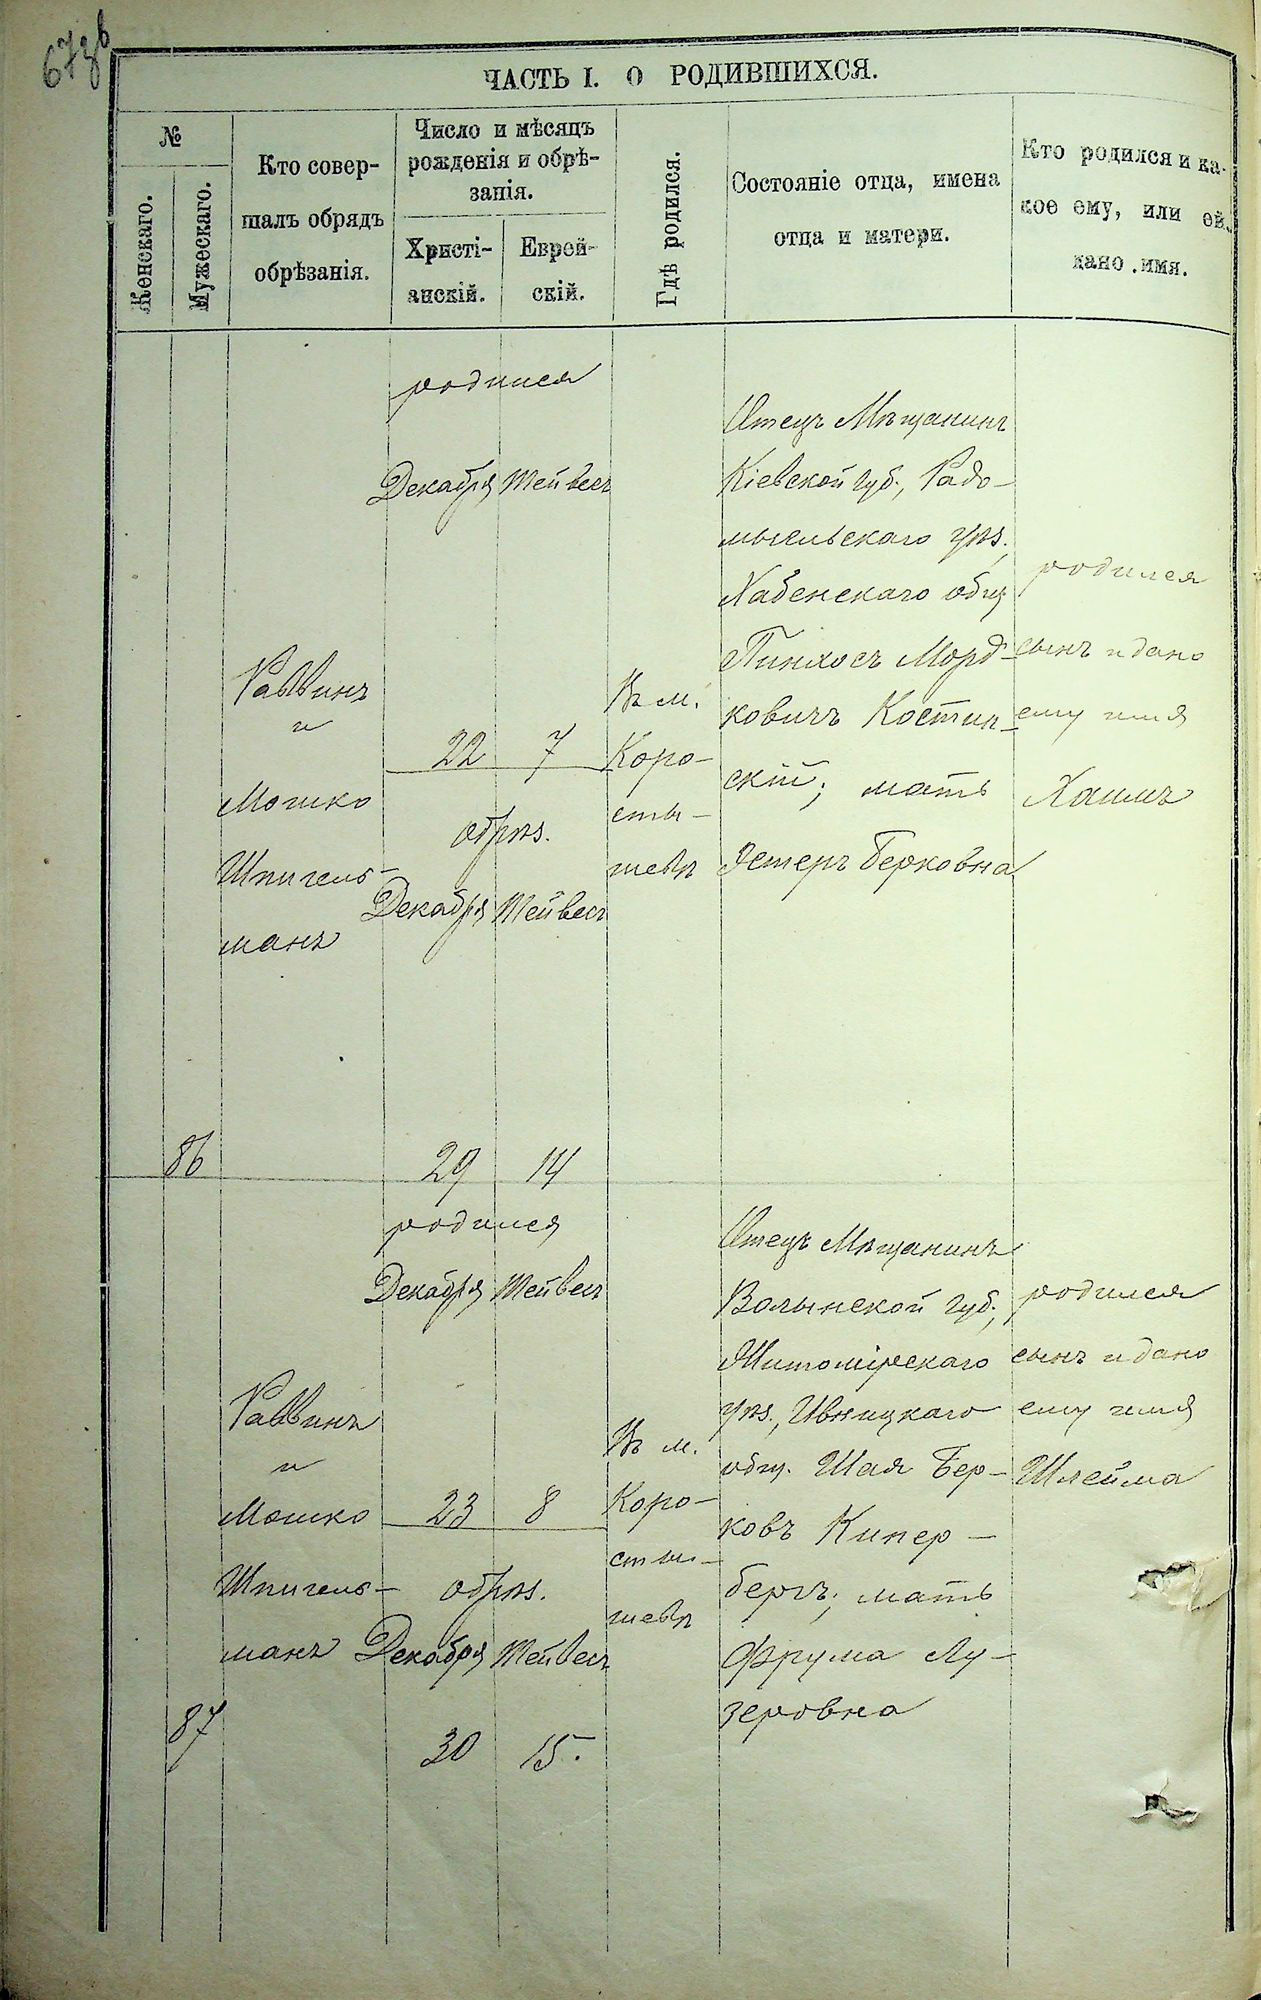 673об
ЧАСТЬ I. О РОДИВШИХСЯ.
№
Женскаго.
Мужескаго.
Кто совер-
шалъ обрядъ
обрѣзанія.
Число и мѣсяцъ
рожденія и обрѣ-
занія.
Христі-
анскій.
Еврей-
скій.
Гдѣ родился.
Состояніе отца, имена
отца и матери.
Кто родился и ка-
кое ему, или ей
дано имя.
86
Раввинъ
и
Мошко
Шпигель-
манъ
родился
Декабря Тейвесъ
22 7
обрѣз.
Декабря Тейвесъ
29 14
Въ м.
Коро-
сты-
шевѣ
Отецъ Мѣщанинъ
Кіевской губ., Радо-
мысльскаго уѣз.,
Хабенскаго общ
Пинхосъ Морд-
ковичъ Костин-
скій; мать
Эстеръ Берковна
родился
сынъ и дано
ему имя
Хаимъ
87
Раввинъ
и
Мошко
Шпигель-
манъ
родился
Декабря Тейвесъ
23 8
обрѣз.
Декабря Тейвесъ
30 15.
Въ м.
Коро-
сты-
шевѣ
Отецъ Мѣщанинъ
Волынской губ.,
Житомірскаго
уѣз., Ивницкаго
общ. Шая Бер-
ковъ Кипер-
бергъ; мать
Фрума Лу-
зеровна
родился
сынъ и дано
ему имя
Шлейма